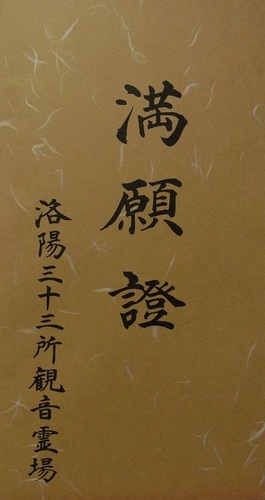 満願證
洛陽三十三所観音霊場